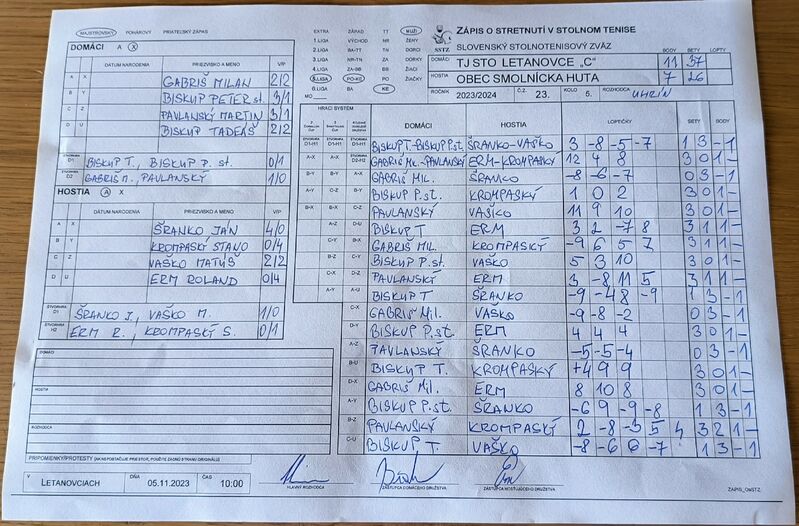 MAJSTROVSKÝ POHÁROVÝ PRIATEĽSKÝ ZÁPAS
DOMÁCI A X
DÁTUM NARODENIA PRIEZVISKO A MENO V/P
A X GABRIŠ MILAN 2/2
B Y BISKUP PETER st. 3/1
C Z PAVLANSKÝ MARTIN 3/1
D U BISKUP TADEÁŠ 2/2
ŠTVORHRA D1 BISKUP T., BISKUP P. st. 0/1
ŠTVORHRA D2 GABRIŠ M., PAVLANSKÝ 1/0
HOSTIA A X
DÁTUM NARODENIA PRIEZVISKO A MENO V/P
A X ŠRANKO JÁN 4/0
B Y KROMPASKÝ STANO 0/4
C Z VAŠKO MATÚŠ 2/2
D U ERM ROLAND 0/4
ŠTVORHRA ŠRANKO J., VAŠKO M. 1/0
ŠTVORHRA H2 ERM R., KROMPASKÝ S. 0/1
DOMÁCI
HOSTIA
ROZHODCA
PRIPOMIENKY/PROTESTY (AK NEPOSTAČUJE PRIESTOR, POUŽITE ZADNÚ STRANU ORIGINÁLU)
EXTRA ZÁPAD TT MUŽI
1.LIGA VÝCHOD NR ŽENY
2.LIGA BA-TT TN DORCI
3.LIGA NR-TN ZA DORKY
4.LIGA ZA-BB BB ŽIACI
5.LIGA PO-KE PO ŽIAČKY
6.LIGA BA KE
MO
SSTZ
ZÁPIS O STRETNUTÍ V STOLNOM TENISE
SLOVENSKÝ STOLNOTENISOVÝ ZVÄZ
BODY SETY LOPTY
DOMÁCI TJ STO LETANOVCE „C“ 11 37
HOSTIA OBEC SMOLNÍCKA HUTA 7 26
ROČNÍK 2023/2024 Č.Z. 23. KOLO 5. ROZHODCA UHRÍN
HRACÍ SYSTÉM
DOMÁCI HOSTIA LOPTIČKY SETY BODY
BISKUP T.-BISKUP P.st. ŠRANKO-VAŠKO 3 -8 -5 -7 1 3 - 1
GABRIŠ Mi.-PAVLANSKÝ ERM-KROMPASKÝ 12 4 8 3 0 1 -
GABRIŠ MIL. ŠRANKO -8 -6 -7 0 3 - 1
BISKUP P.st. KROMPASKÝ 1 0 2 3 0 1 -
PAVLANSKÝ VAŠKO 11 9 10 3 0 1 -
BISKUP T ERM 3 2 -7 8 3 1 1 -
GABRIŠ MIL. KROMPASKÝ -9 6 5 7 3 1 1 -
BISKUP P.st. VAŠKO 5 3 10 3 0 1 -
PAVLANSKÝ ERM 3 -8 11 5 3 1 1 -
BISKUP T ŠRANKO -9 -4 8 -9 1 3 - 1
GABRIŠ Mil. VAŠKO -9 -8 -2 0 3 - 1
BISKUP P.st. ERM 4 4 4 3 0 1 -
PAVLANSKÝ ŠRANKO -5 -5 -4 0 3 - 1
BISKUP T. KROMPASKÝ 4 9 9 3 0 1 -
GABRIŠ Mil. ERM 8 10 8 3 0 1 -
BISKUP P.st. ŠRANKO -6 9 -9 -8 1 3 - 1
PAVLANSKÝ KROMPASKÝ 2 -8 -3 5 4 3 2 1 -
BISKUP T. VAŠKO -8 -6 6 -7 1 3 - 1
V LETANOVCIACH DŇA 05.11.2023 ČAS 10:00
HLAVNÝ ROZHODCA ZÁSTUPCA DOMÁCEHO DRUŽSTVA ZÁSTUPCA HOSŤUJÚCEHO DRUŽSTVA
ZÁPIS_OMSTZ.